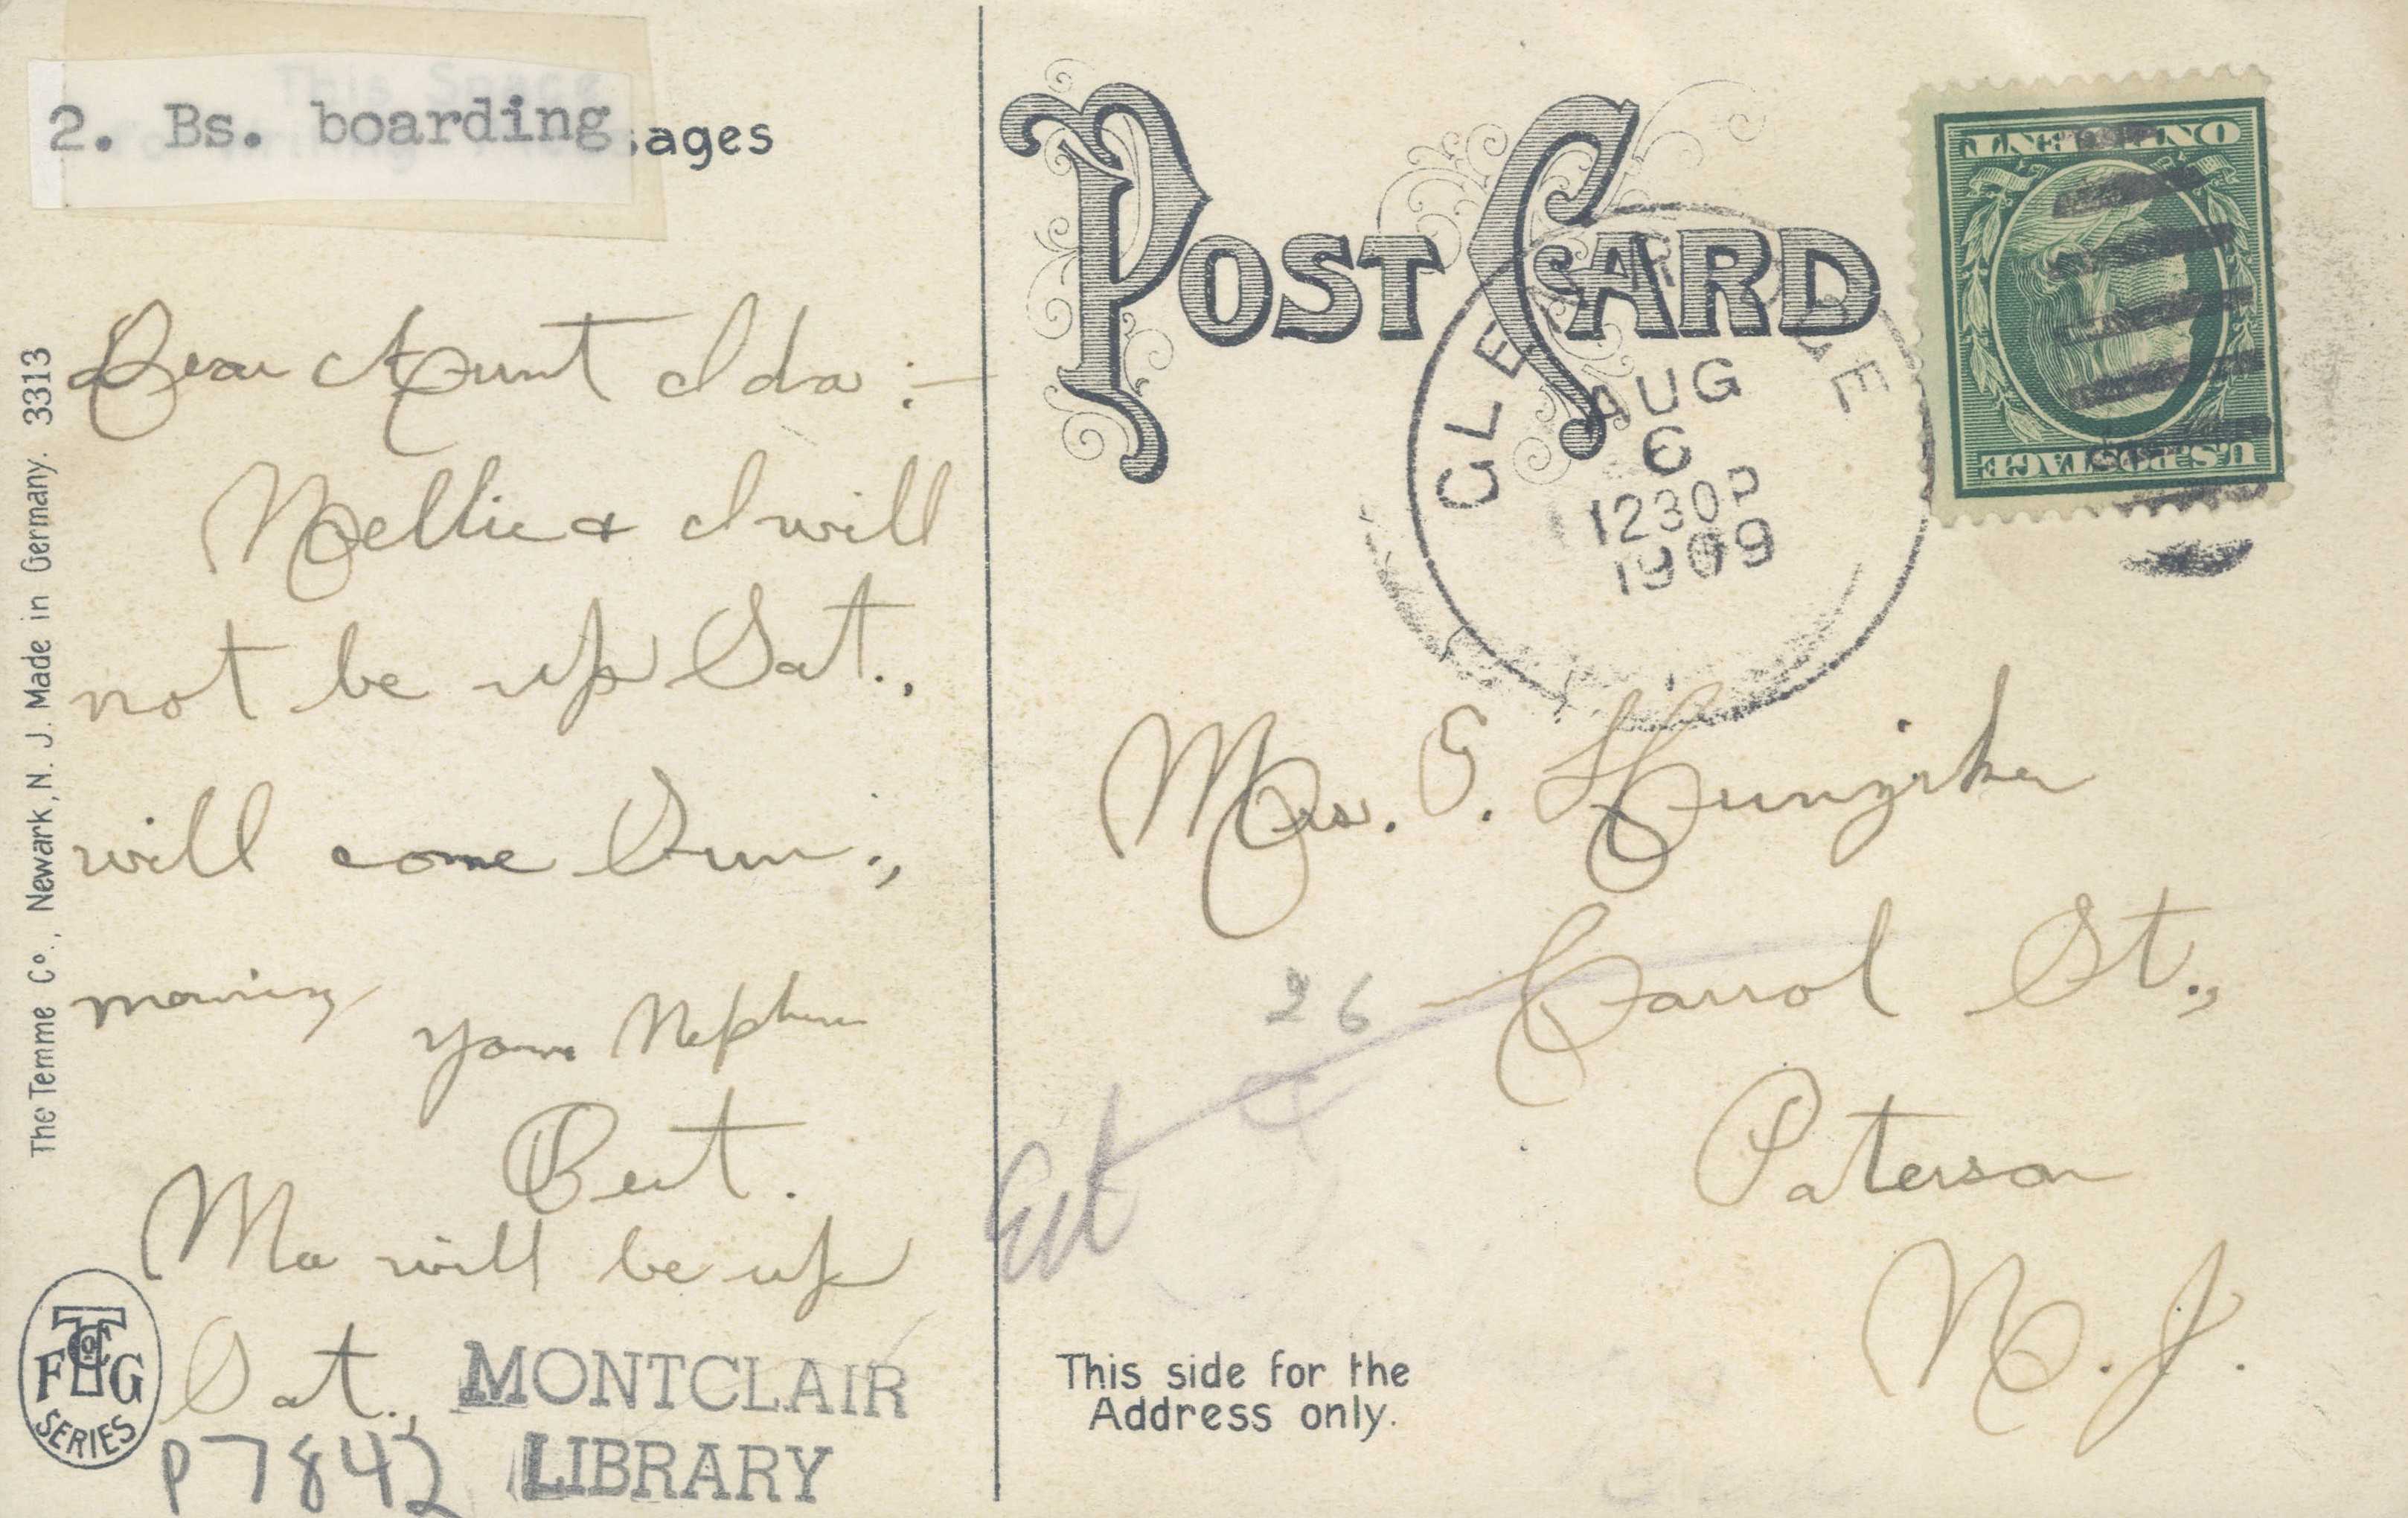 2. Bs. boarding
This Space
sages
Dear Aunt Ida :-
Nellie & I will
not be up Sat.,
will come Sun.,
morning
Your Nephew
Bert.
Ma will be up
Sat.,
MONTCLAIR
LIBRARY
P7842
The Temme Co., Newark, N. J. Made in Germany. 3313
T Co
F G
SERIES
POST CARD
ONE CENT
U.S. POSTAGE
AUG
6
1230P
1909
Mrs. E. Hunziker
26 Carrol St.,
Paterson
N. J.
This side for the
Address only.